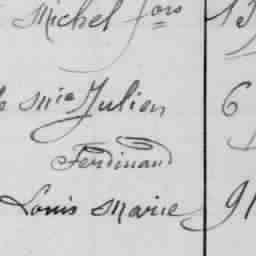 Michel fois 15
mie Julien 6
Ferdinand
Louis Marie 91